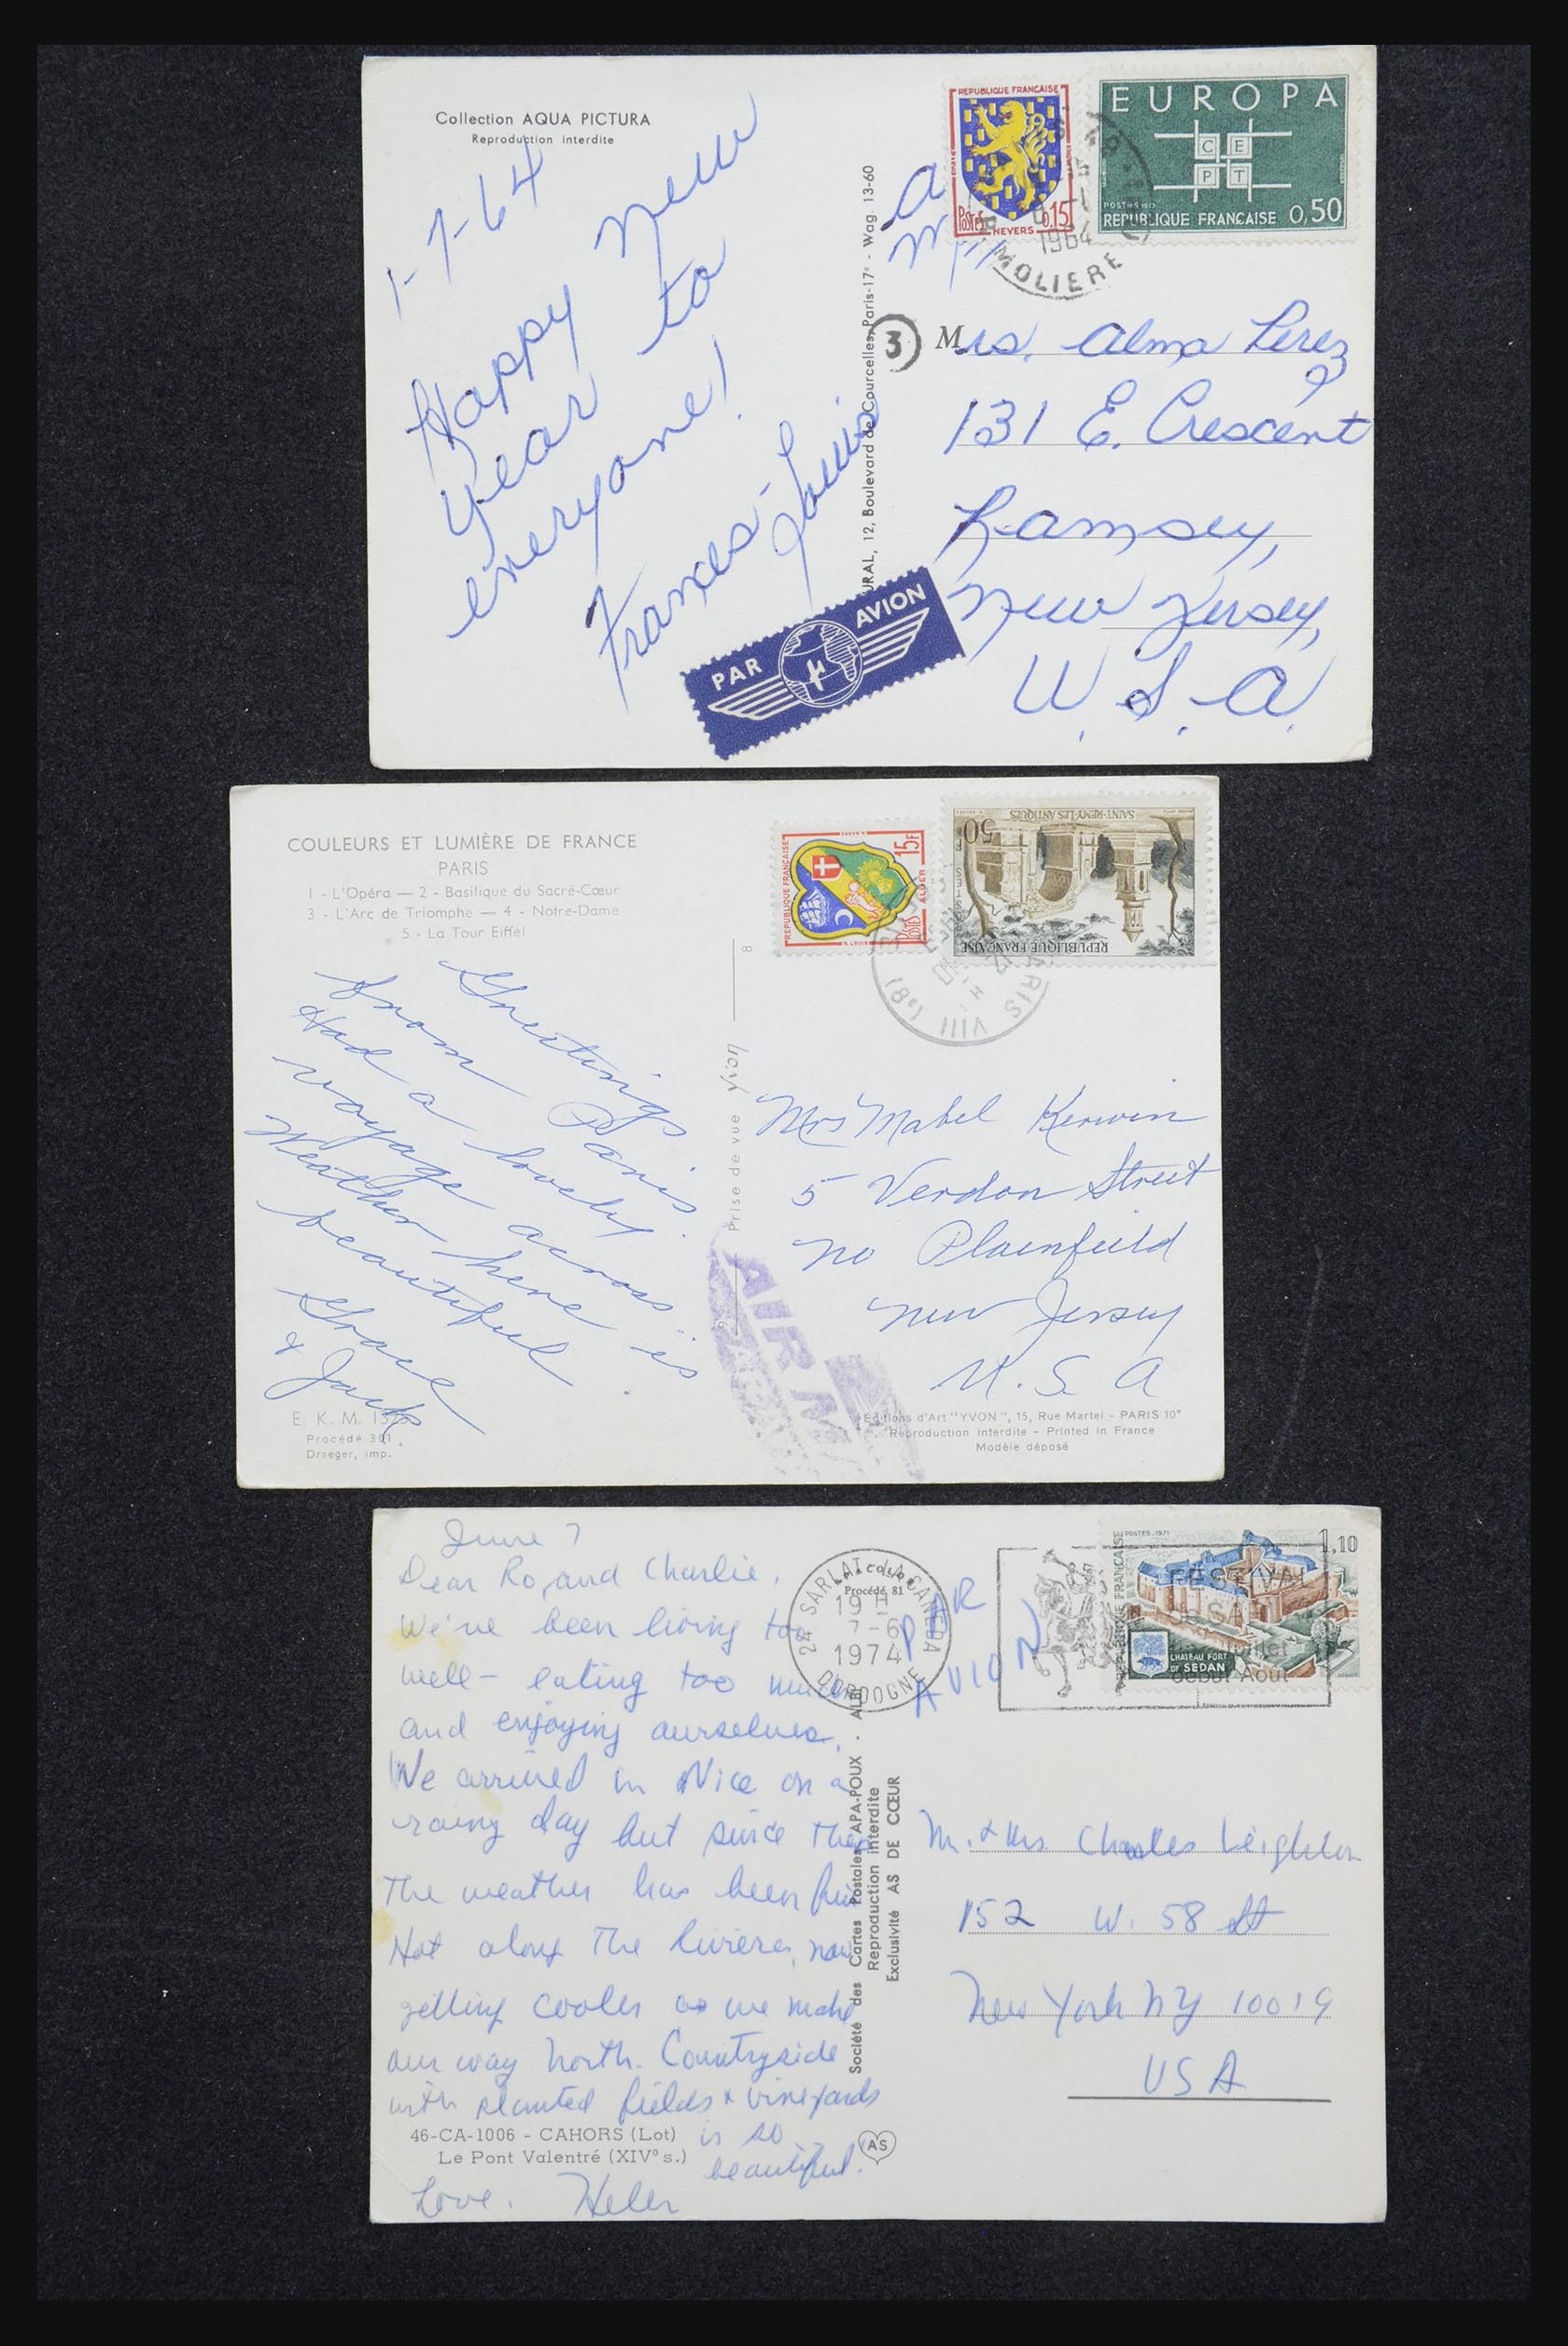 Collection AQUA PICTURA
Reproduction interdite
1-7-64
Happy New
Year to
everyone!
Frances-Louis
URAL, 12, Boulevard de Courcelles, Paris-17e - Wag. 13-60
PAR AVION
REPUBLIQUE FRANÇAISE
POSTES 0,15
NEVERS
EUROPA
C E
P T
POSTES 1963
REPUBLIQUE FRANÇAISE 0,50
1964
MOLIERE
3
Mrs. Alma Perez
131 E. Crescent
Ramsey,
New Jersey,
U.S.A.
COULEURS ET LUMIÈRE DE FRANCE
PARIS
1 - L'Opéra — 2 - Basilique du Sacré-Cœur
3 - L'Arc de Triomphe — 4 - Notre-Dame
5 - La Tour Eiffel
Greetings
from Paris.
Had a lovely
voyage across.
Weather here is
beautiful.
Grace
& Jack
E. K. M.
Procédé 301
Draeger, imp.
8
Prise de vue Yvon
REPUBLIQUE FRANÇAISE
15F
POSTES ALGER
SAINT-REMY LES ANTIQUES
50F
REPUBLIQUE FRANÇAISE
PARIS VIII (8e)
Mrs Mabel Kerwin
5 Verdon Street
No Plainfield
New Jersey
U.S.A
AIR M
Editions d'Art "YVON", 15, Rue Martel - PARIS 10e
Reproduction interdite - Printed in France
Modèle déposé
June 7
Dear Ro, and Charlie,
We've been living too
well - eating too much
and enjoying ourselves.
We arrived in Nice on a
rainy day but since then
The weather has been fine
Hot along The Riviera, now
getting cooler as we make
our way North. Countryside
with planted fields & vineyards
is so
beautiful.
Love, Helen
46-CA-1006 - CAHORS (Lot)
Le Pont Valentré (XIVe s.)
24 SARLAT-LA-CANEDA
19 H
7-6
1974
DORDOGNE
Procédé 81
PAR
AVION
FESTIVAL
Juillet
Début Août
POSTES 1971
1,10
REPUBLIQUE FRANÇAISE
CHATEAU FORT
DE SEDAN
Société des Cartes Postales APA-POUX - ALBI
Reproduction interdite
Exclusivité AS DE CŒUR
AS
Mr. & Mrs Charles Leighton
152 W. 58 St
New York NY 10019
USA